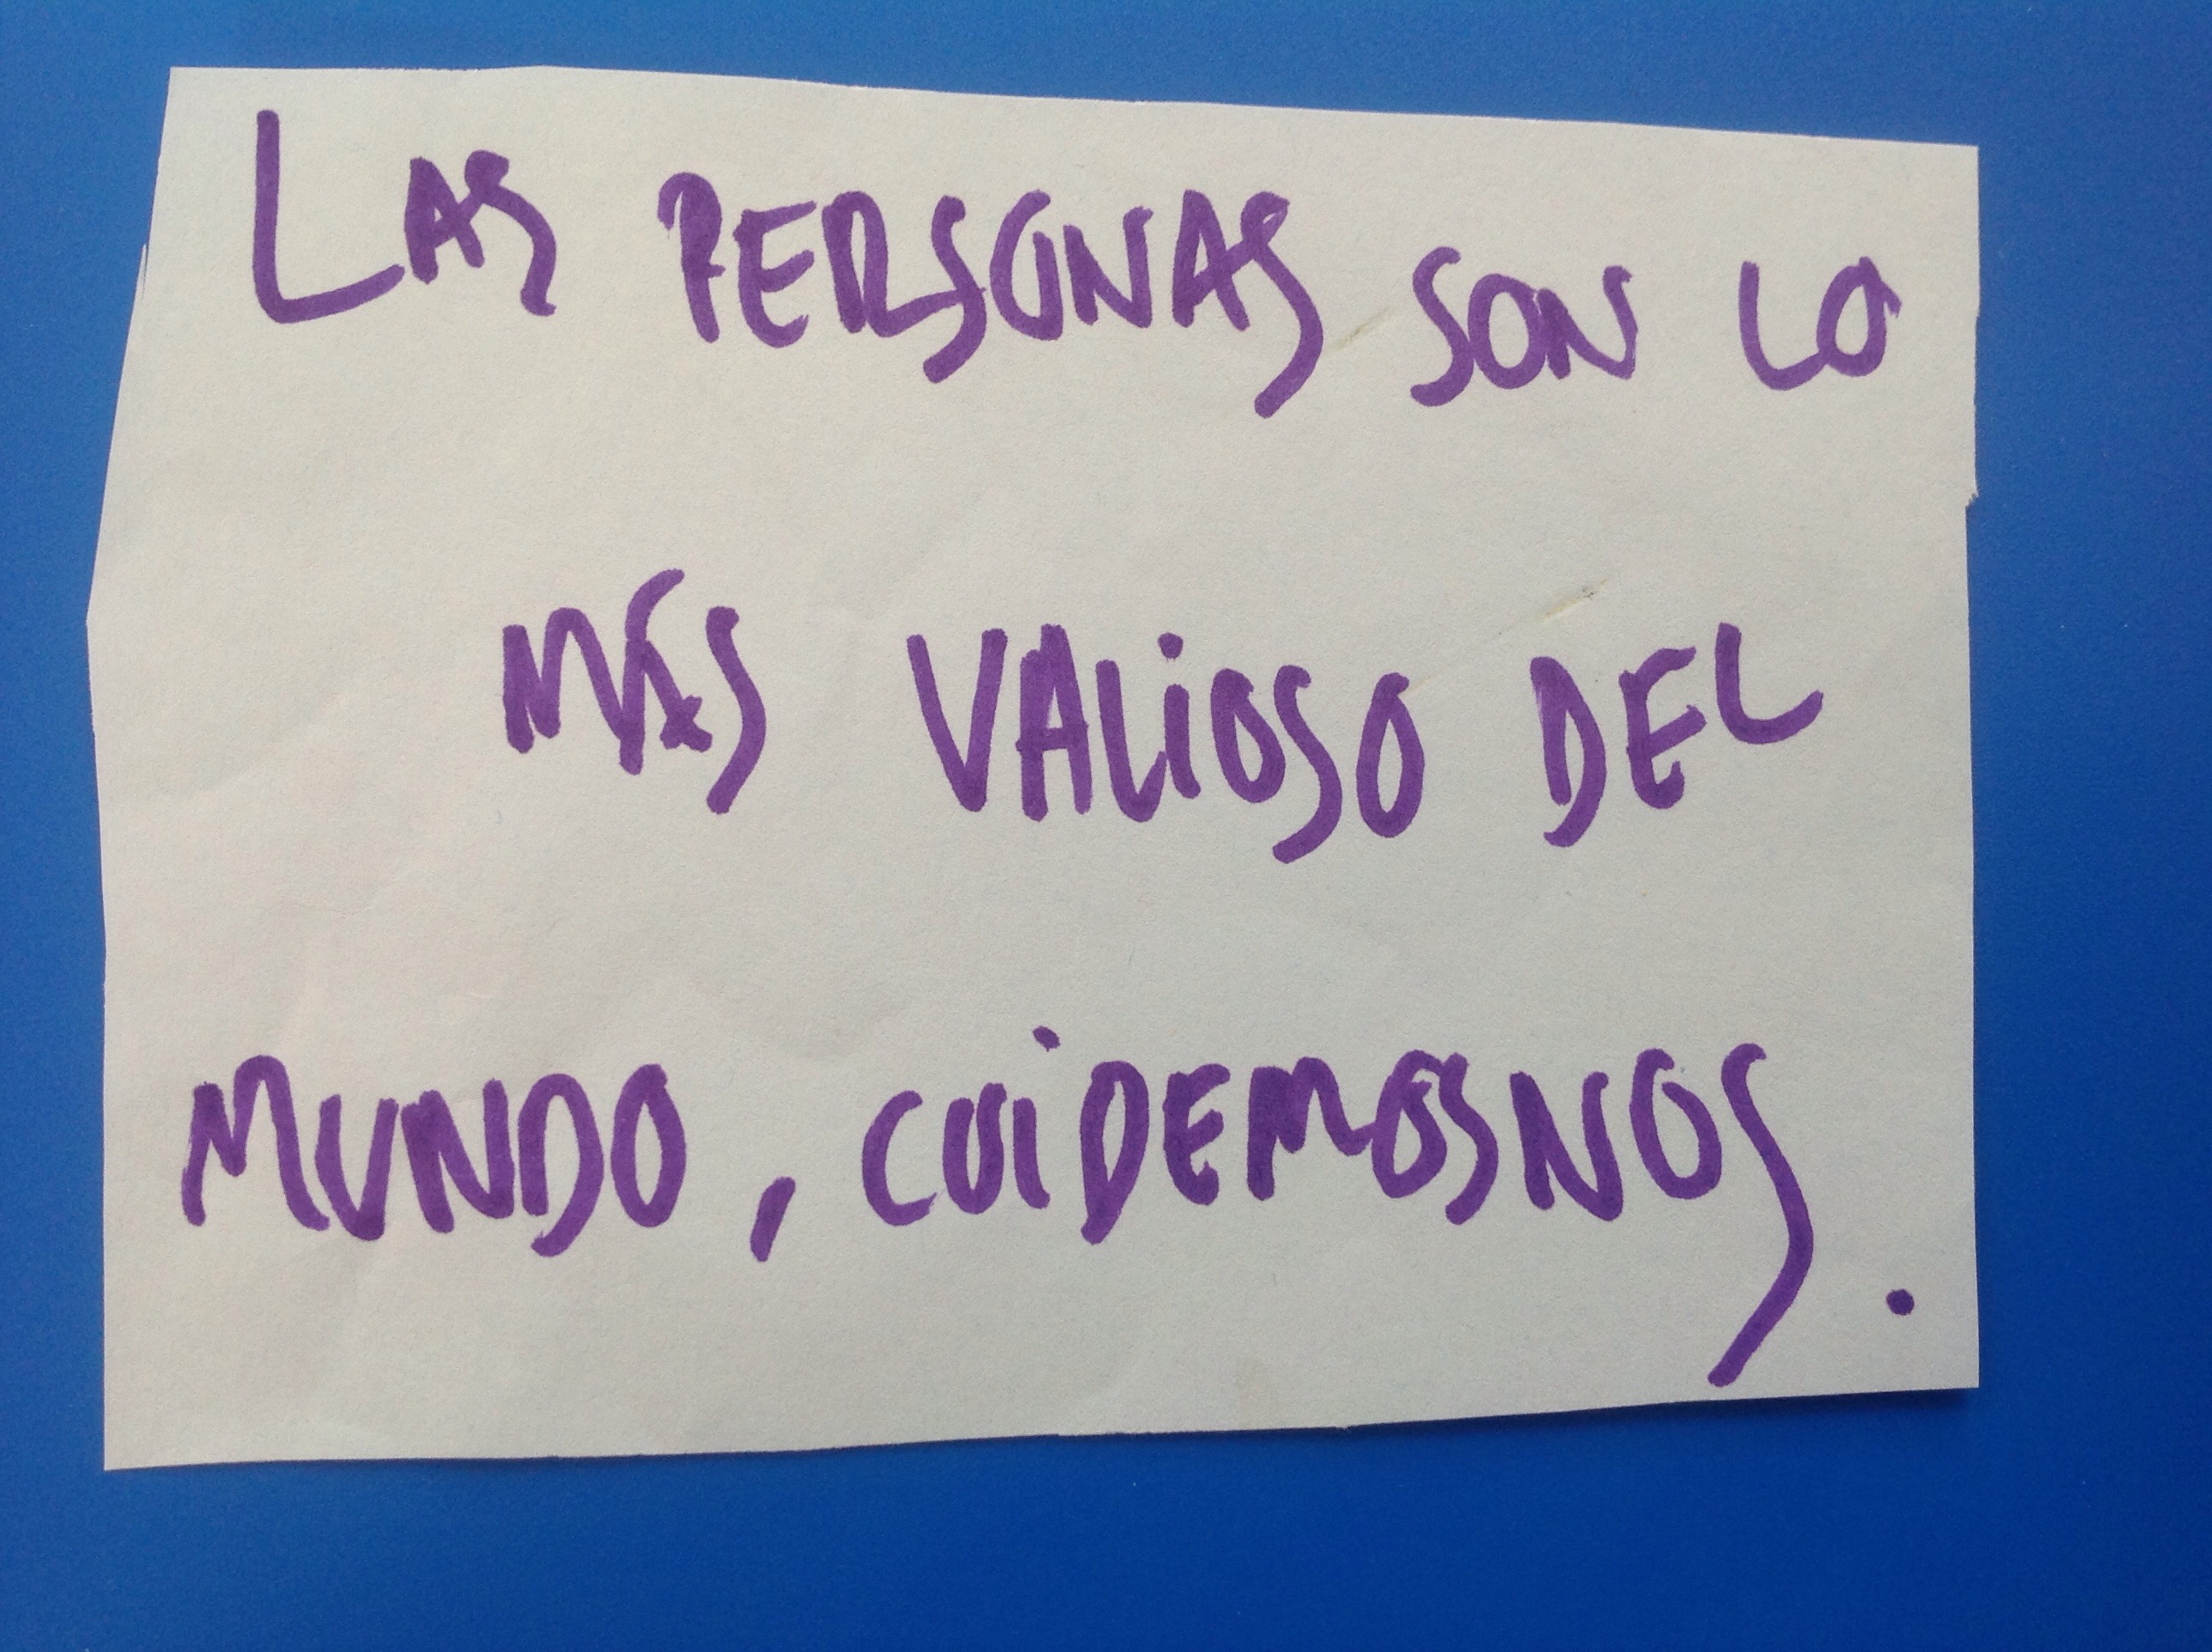 LAS PERSONAS SON LO
MÁS VALIOSO DEL
MUNDO, CUIDEMOSNOS.